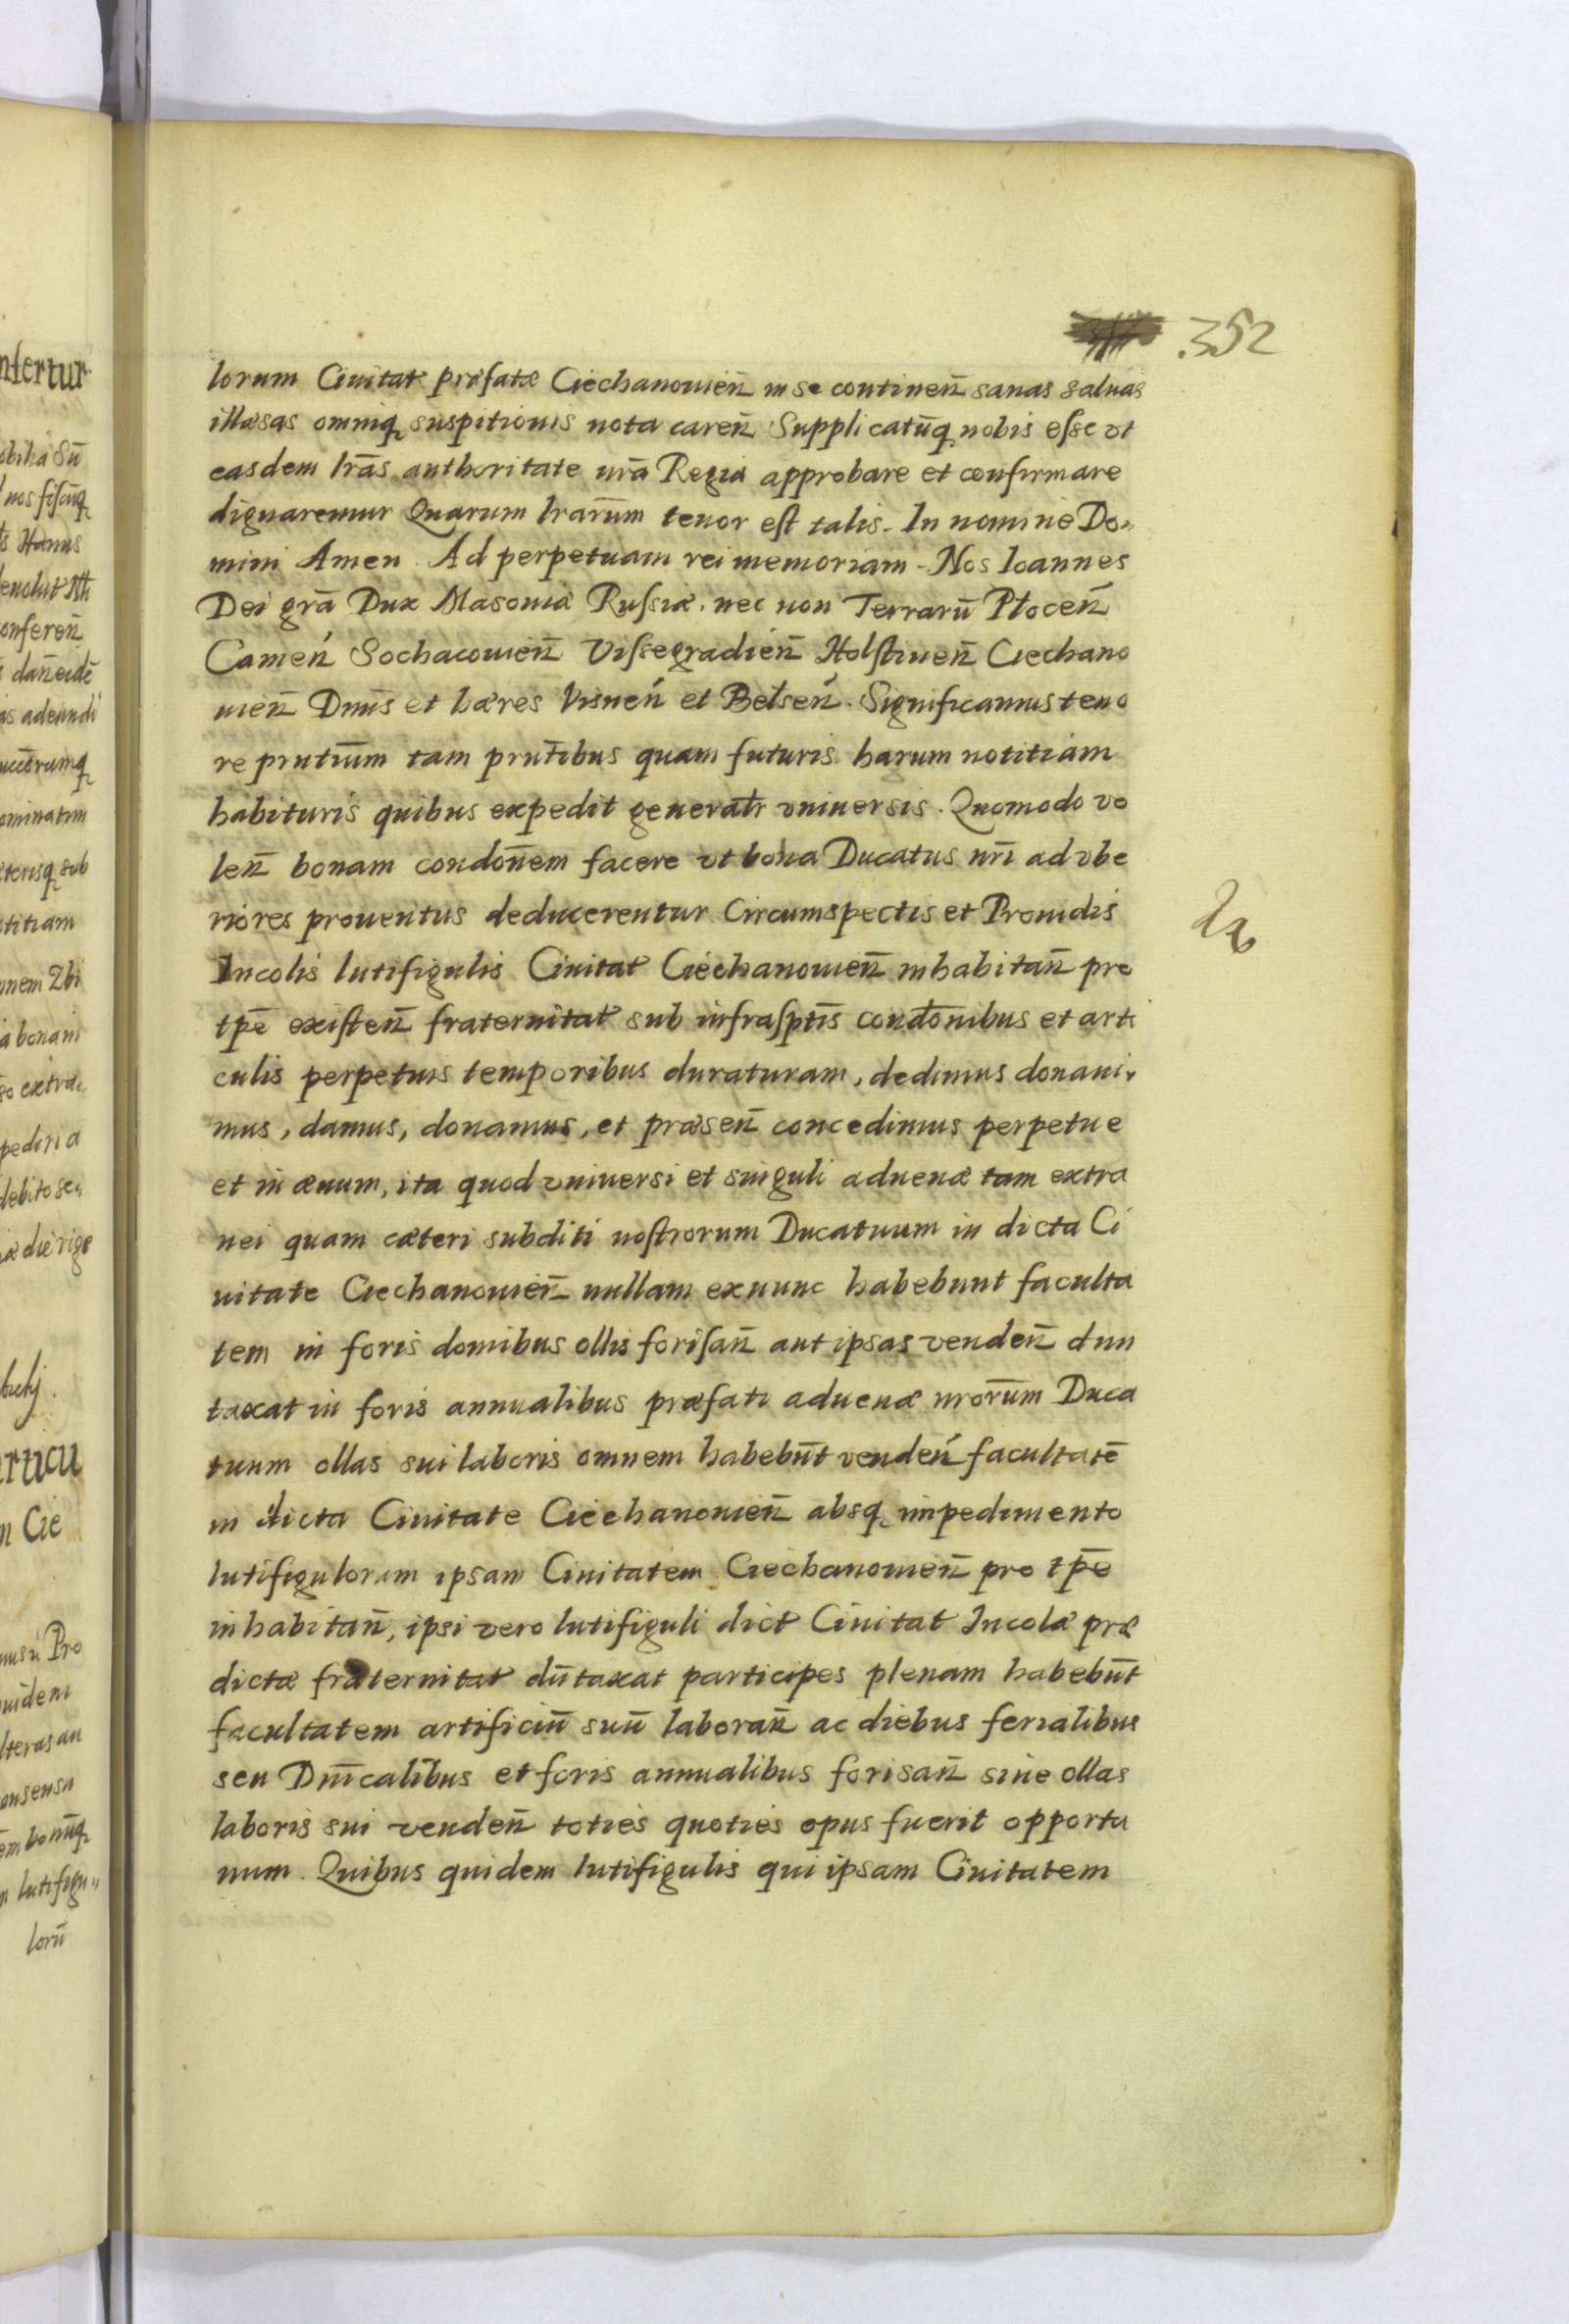 352
lorum Ciuitat præfatæ Ciechanouien̄ in se continen̄ sanas saluas
illæsas omniq suspitionis nota caren̄ Supplicatūq nobis esse vt
easdem lrās authoritate nr̄a Regia approbare et confirmare
dignaremur Quarum lrarūm tenor est talis. In nomine Do,
mini Amen. Ad perpetuam rei memoriam. Nos Ioannes
Dei grā Dux Masouiæ Russiæ. nec non Terrarū Płocen̄
Camen̄ Sochacouien̄ Vissegradien̄ Holstinen̄ Ciechano
uien̄ Dnūs et hæres Visnen̄ et Bełsen̄. Significamus teno
re prntiūm tam prntībus quam futuris harum notitiam
habituris quibus expedit generatr vniuersis. Quomodo vo
len̄ bonam condōnem facere vt bona Ducatus nrī ad vbe
riores prouentus deducerentur Circumspectis et Prouidis
Incolis lutifigulis Ciuitat Ciechanouien̄ inhabitan̄ pro
tpē existen̄ fraternitat sub infrasptīs condōnibus et arti
culis perpetuis temporibus duraturam, dedimus donaui,
mus, damus, donamus, et præsen̄ concedimus perpetue
et in æuum, ita quod vniuersi et singuli aduenæ tam extra
nei quam cæteri subditi nostrorum Ducatuum in dicta Ci
uitate Ciechanouien̄ nullam ex nunc habebunt faculta
tem in foris domibus ollis forisan̄ aut ipsas venden̄ dun
taxat in foris annualibus præfati aduenæ nrorūm Duca
tuum ollas sui laboris omnem habebūt venden̄ facultatē
in dicta Ciuitate Ciechanouien̄ absq impedimento
lutifigulorum ipsam Ciuitatem Ciechanouien̄ pro tpē
inhabitan̄, ipsi vero lutifiguli dict Ciuitat Incolæ præ
dictæ fraternitat dūtaxat participes plenam habebūt
facultatem artificiū suū laboran̄ ac diebus ferialibus
seu Dnīcalibus et foris annualibus forisan̄ siue ollas
laboris sui venden̄ toties quoties opus fuerit opportu
num. Quibus quidem lutifigulis qui ipsam Ciuitatem